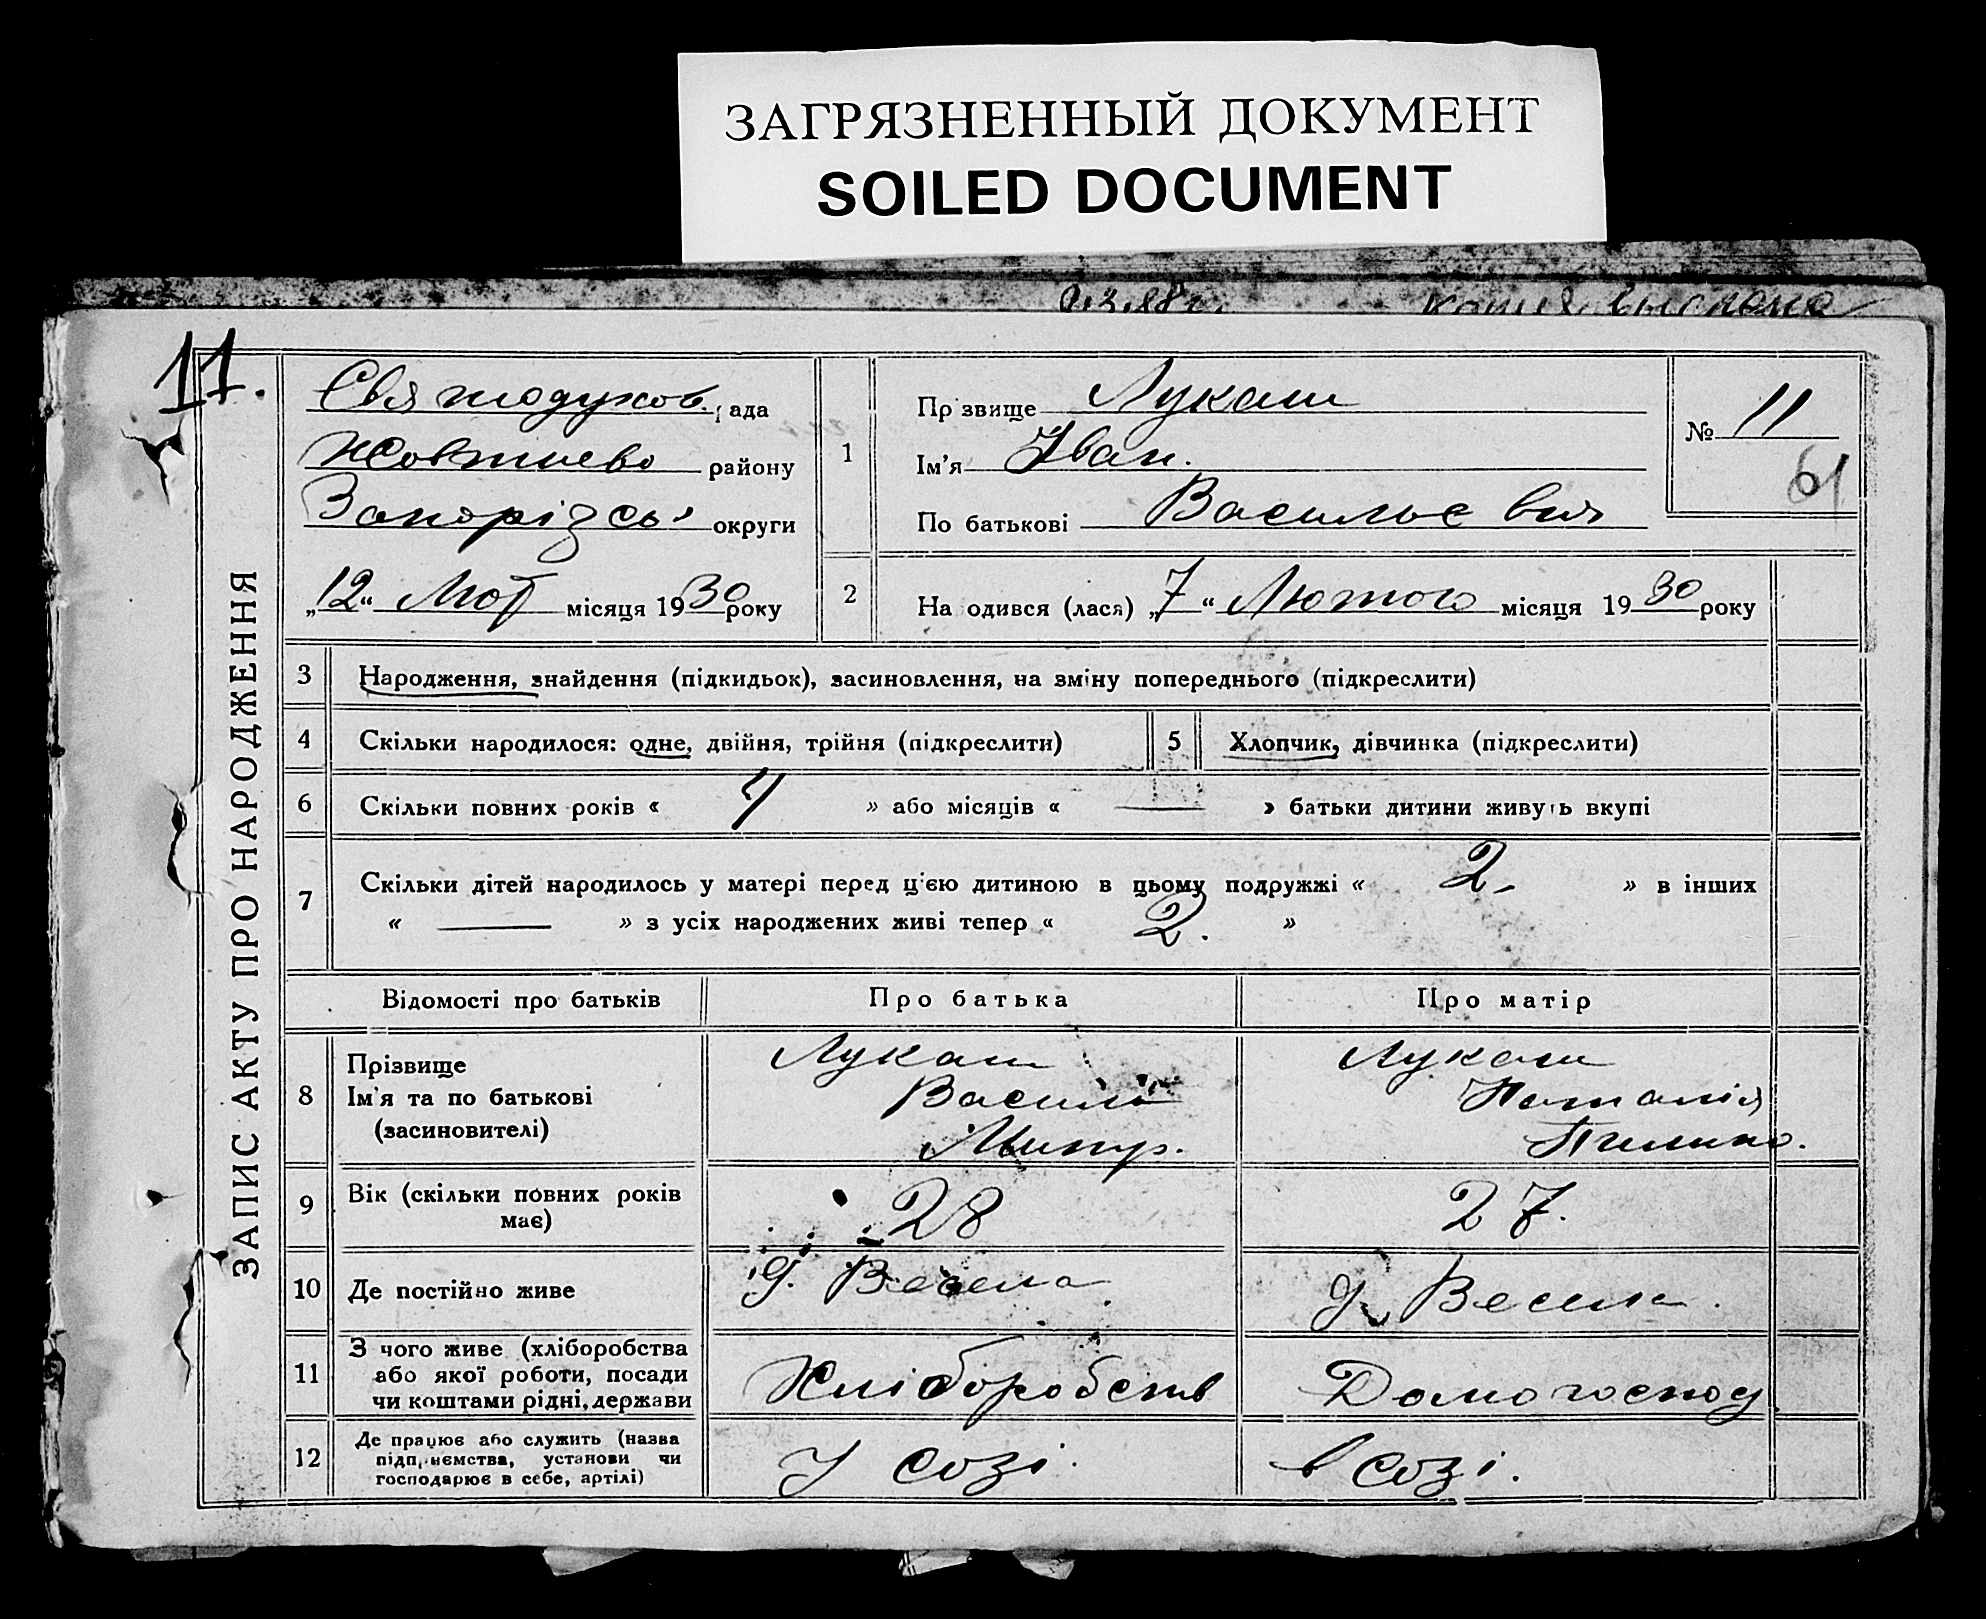 ЗАГРЯЗНЕННЫЙ ДОКУМЕНТ
SOILED DOCUMENT
копия выслана
11.
ЗАПИС АКТУ ПРО НАРОДЖЕННЯ
Святодухов. рада
Жовтнево району
Запорізсь округи
„12“ Лют місяця 1930 року
1
Прізвище Лукаш
Ім'я Іван.
По батькові Васильєвич
№ 11
61
2
Народився (лася) „7“ Лютого місяця 1930 року
3 Народження, знайдення (підкидьок), засиновлення, на зміну попереднього (підкреслити)
4 Скільки народилося: одне, двійня, трійня (підкреслити) 5 Хлопчик, дівчинка (підкреслити)
6 Скільки повних років « » або місяців « — » батьки дитини живуть вкупі
7 Скільки дітей народилось у матері перед цією дитиною в цьому подружжі « 2. » в інших
« — » з усіх народжених живі тепер « 2. »
Відомості про батьків Про батька Про матір
8 Прізвище Ім'я та по батькові (засиновителі)
Лукаш Василь
Лукаш Наталія
9 Вік (скільки повних років має) 28 27.
10 Де постійно живе Весела Весела.
11 З чого живе (хліборобства або якої роботи, посади чи коштами рідні, держави Хліборобств Домогоспод
12 Де працює або служить (назва підприємства, установи чи господарює в себе, артілі) У созі. в созі.